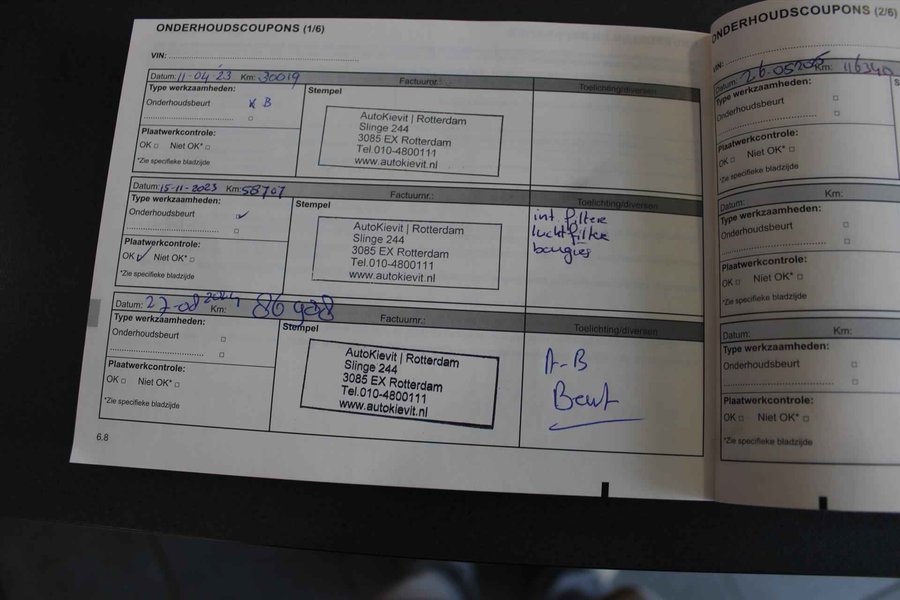 ONDERHOUDSCOUPONS (1/6)
VIN:
Datum: 11-04-23 Km: 30019 Factuurnr.: Toelichting/diversen
Type werkzaamheden:
Onderhoudsbeurt x B
Plaatwerkcontrole:
OK Niet OK*
*Zie specifieke bladzijde
Stempel
AutoKievit | Rotterdam
Slinge 244
3085 EX Rotterdam
Tel.010-4800111
www.autokievit.nl
Datum: 15-11-2023 Km: 58707 Factuurnr.: Toelichting/diversen
Type werkzaamheden:
Onderhoudsbeurt ✓
Plaatwerkcontrole:
OK ✓ Niet OK*
*Zie specifieke bladzijde
Stempel
AutoKievit | Rotterdam
Slinge 244
3085 EX Rotterdam
Tel.010-4800111
www.autokievit.nl
int. filtere
luchtfilter
bougies
Datum: 27-08-2024 Km: 86908 Factuurnr.: Toelichting/diversen
Type werkzaamheden:
Onderhoudsbeurt
Plaatwerkcontrole:
OK Niet OK*
*Zie specifieke bladzijde
Stempel
AutoKievit | Rotterdam
Slinge 244
3085 EX Rotterdam
Tel.010-4800111
www.autokievit.nl
A-B
Beurt
6.8
ONDERHOUDSCOUPONS (2/6)
VIN:
Datum: 26-05-2025 Km: 116340
Type werkzaamheden:
Onderhoudsbeurt
Plaatwerkcontrole:
OK Niet OK*
*Zie specifieke bladzijde
Datum: Km:
Type werkzaamheden:
Onderhoudsbeurt
Plaatwerkcontrole:
OK Niet OK*
*Zie specifieke bladzijde
Datum: Km:
Type werkzaamheden:
Onderhoudsbeurt
Plaatwerkcontrole:
OK Niet OK*
*Zie specifieke bladzijde